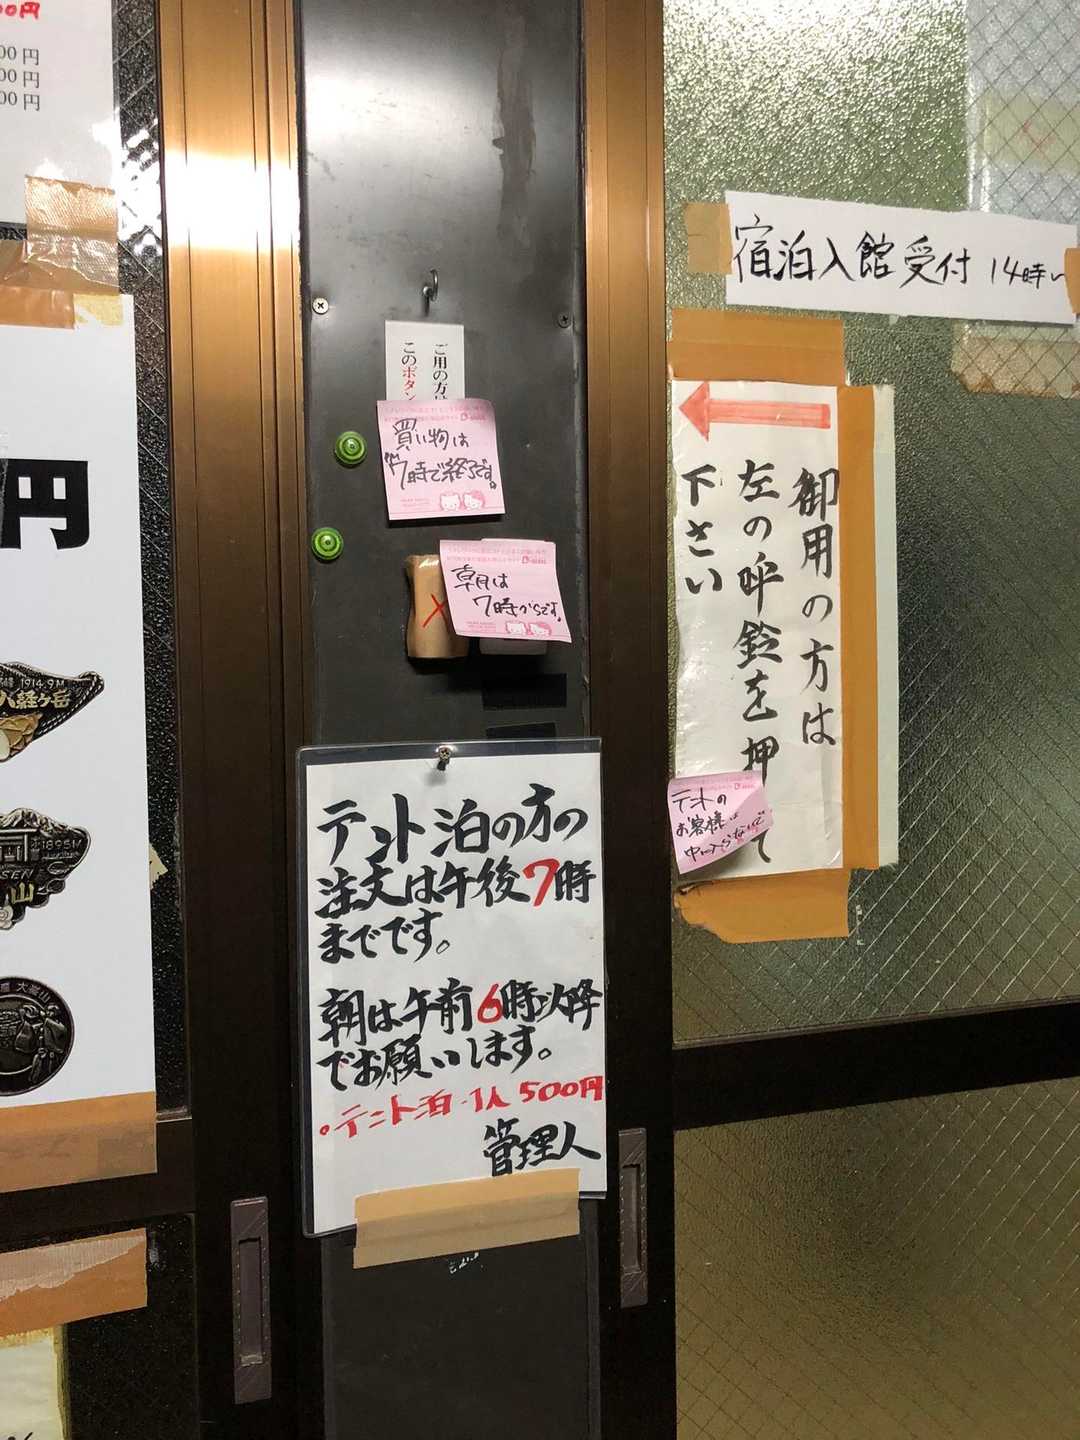 00円
00円
00円
00円
円
1914.9M
八経ヶ岳
1895M
SEN
山
大峯山
ご用の方は
このボタン
買い物は
7時で終了です。
朝は
7時からです。
宿泊入館受付 14時〜
御用の方は
左の呼鈴を押
て
下さい
テントの
お客様は
中へ入らないで
テント泊の方の
注文は午後7時
までです。
朝は午前6時以降
でお願いします。
。テント泊・1人500円
管理人